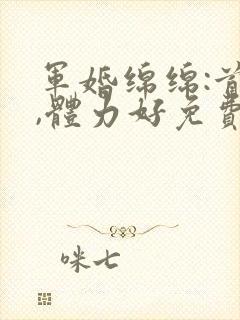 軍婚綿綿:首
,體力好免費
咪七